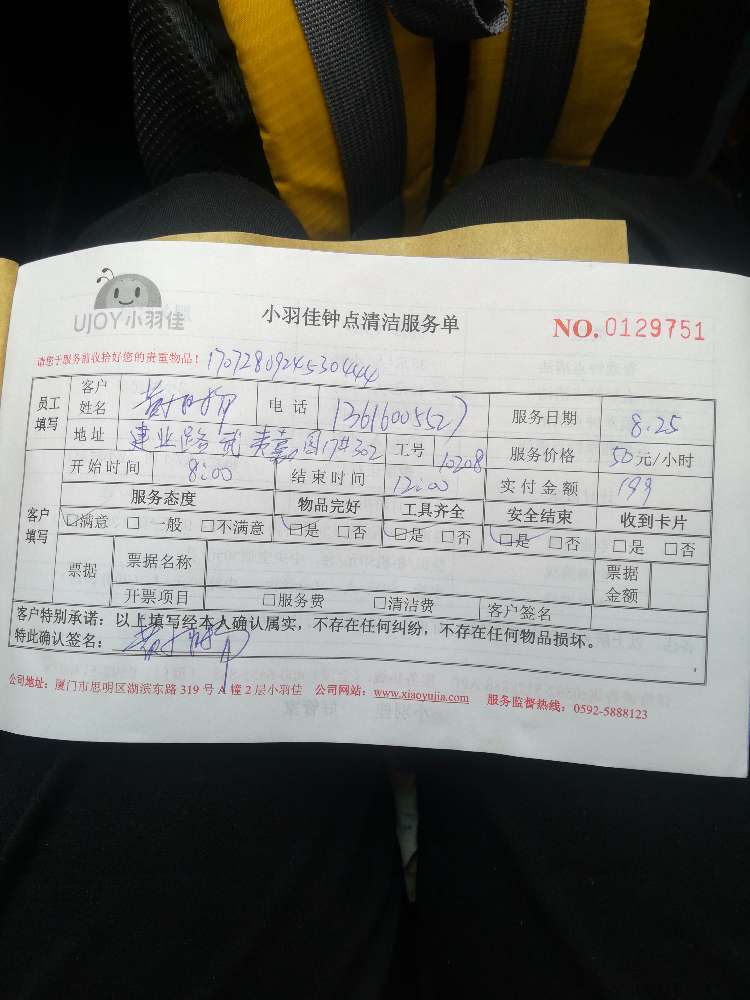 UJOY小羽佳
小羽佳钟点清洁服务单
NO.0129751
请您于服务前收拾好您的贵重物品！ 1707280924530444
员工填写 客户姓名 电话 13616005527 服务日期 8.25
地址 建业路武夷嘉园17#302 工号 10208 服务价格 50元/小时
客户填写 开始时间 8:00 结束时间 12:00 实付金额 199
服务态度 物品完好 工具齐全 安全结束 收到卡片
☑满意 □一般 □不满意 ☑是 □否 ☑是 □否 ☑是 □否 □是 □否
票据 票据名称 票据金额
开票项目 □服务费 □清洁费 客户签名
客户特别承诺：以上填写经本人确认属实，不存在任何纠纷，不存在任何物品损坏。
特此确认签名：
公司地址：厦门市思明区湖滨东路319号A幢2层小羽佳 公司网站：www.xiaoyujia.com 服务监督热线：0592-5888123